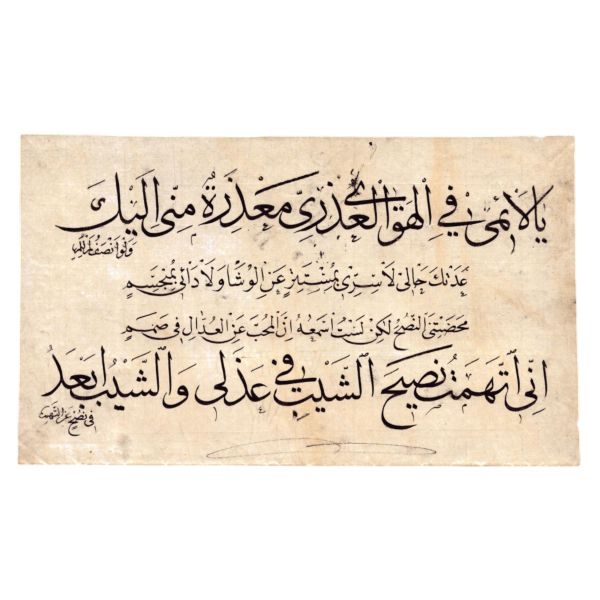 يا لائمي في الهوى العذري معذرة مني اليك
ولو انصفت لم تلم
عدتك حالي لا سري بمستتر عن الوشاة ولا دائي بمنحسم
محضتني النصح لكن لست اسمعه ان المحب عن العذال في صمم
اني اتهمت نصيح الشيب في عذلي والشيب ابعد
في نصح عن التهم